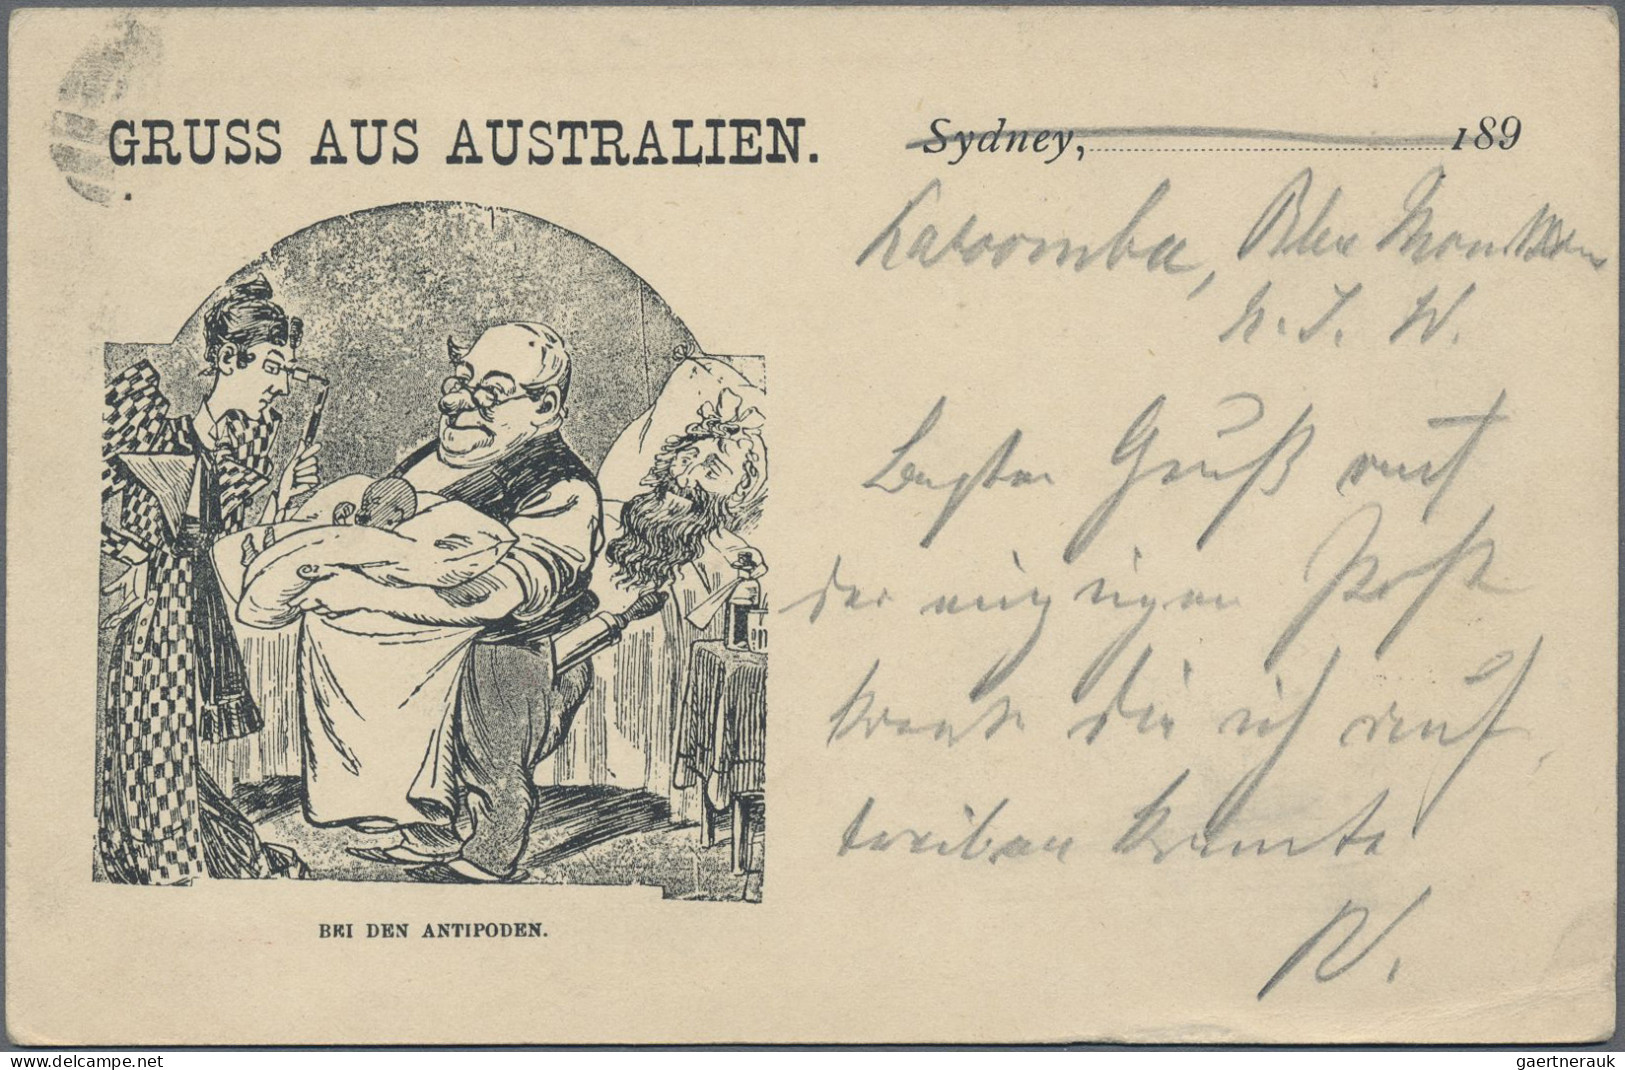 GRUSS AUS AUSTRALIEN.
Sydney, 189
Katoomba, Blue Mountains
N. S. W.
Besten Gruß mit
der einzigen Post
karte die ich auf
treiben konnte
BEI DEN ANTIPODEN.
www.delcampe.net
gaertnerauk